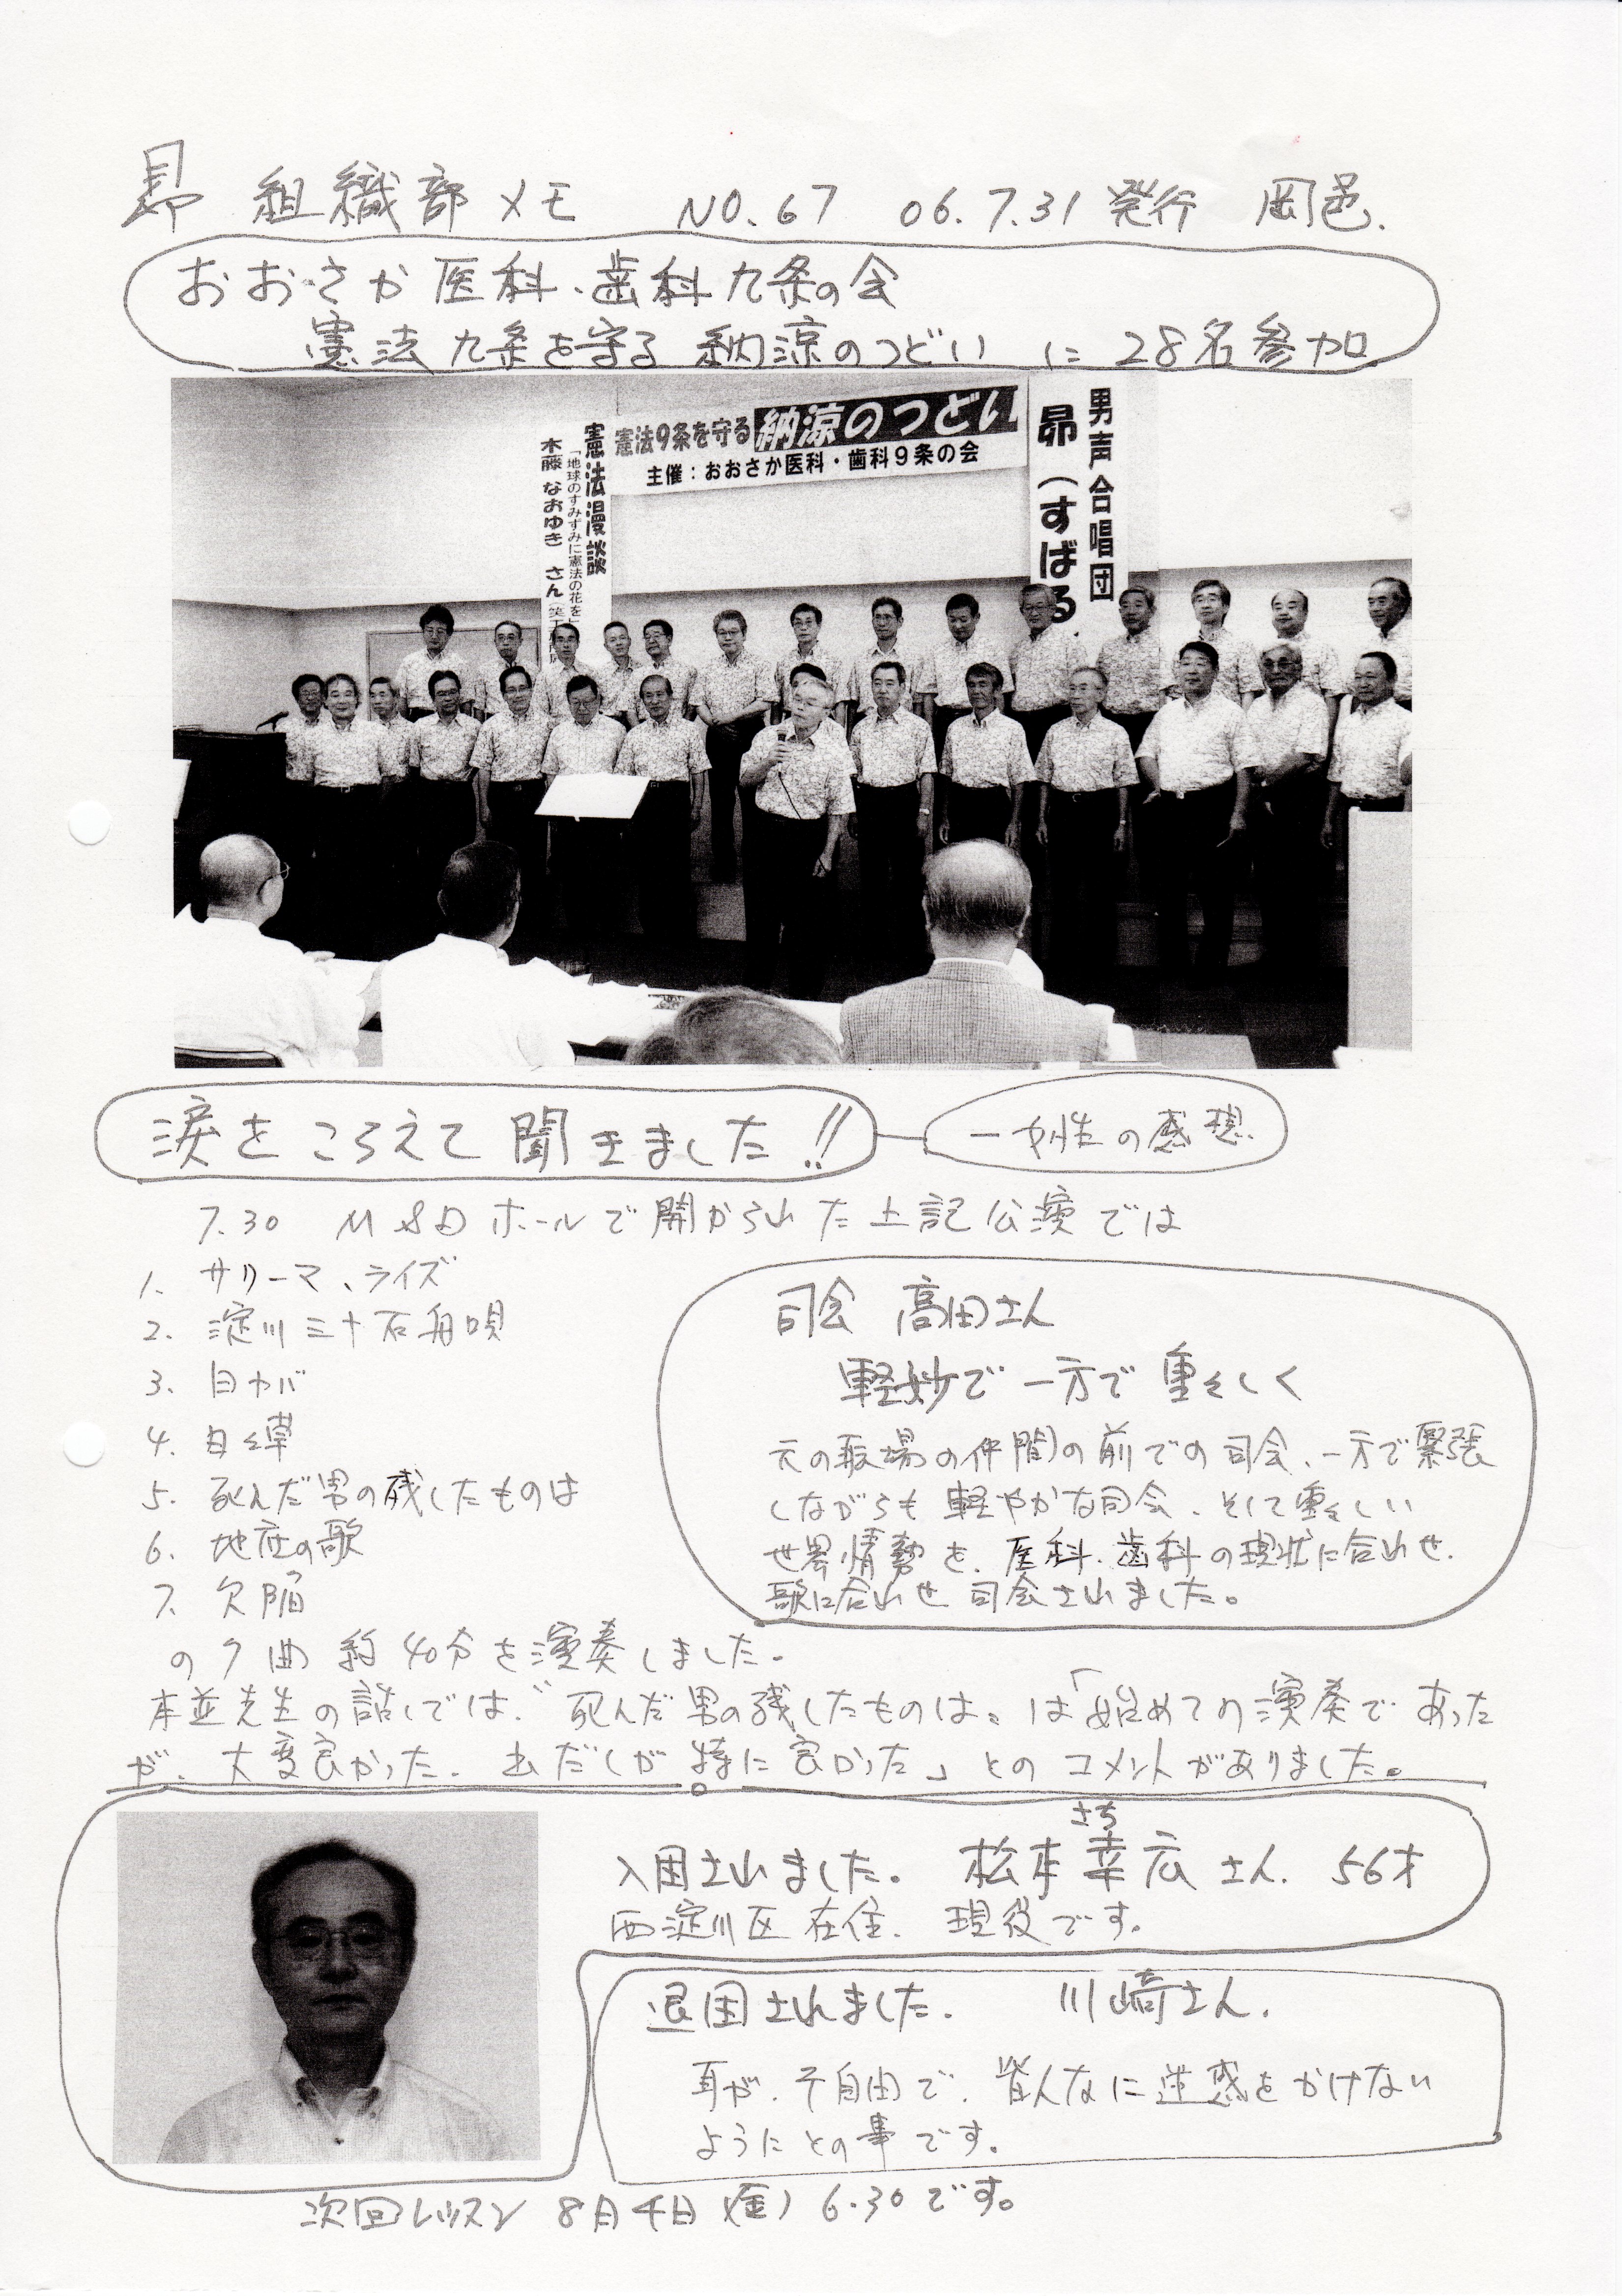 昴 組織部メモ NO.67 06.7.31発行 岡邑.
おおさか医科・歯科九条の会
憲法九条を守る納涼のつどい に 28名参加
憲法9条を守る納涼のつどい
主催：おおさか医科・歯科9条の会
憲法漫談
「地球のすみずみに憲法の花を」
木藤 なおゆき さん
男声合唱団
昴（すばる
涙をこらえて聞きました!!
一女性の感想
7.30 MSDホールで開かられた上記公演では
1. サリーマ、ライズ
2. 淀川三十石舟唄
3. 白カバ
4. 日々草
5. 死んだ男の残したものは
6. 地底の歌
7. 欠陥
の7曲 約40分を演奏しました。
司会 高田さん
軽妙で一方で重々しく
元の職場の仲間の前での司会、一方で緊張
しながらも軽やかな司会、そして重々しい
世界情勢を、医科、歯科の現状に合わせ、
歌に合わせ司会されました。
本並先生の話しでは、"死んだ男の残したものは〟は「始めての演奏であった
が、大変良かった、出だしが特に良かった」とのコメントがありました。
さち
入団されました。 松本幸広さん. 56才
西淀川区在住、現役です。
退団されました. 川崎さん.
耳が、不自由で、皆んなに迷惑をかけない
ようにとの事です。
次回レッスン 8月4日(金) 6.30です。